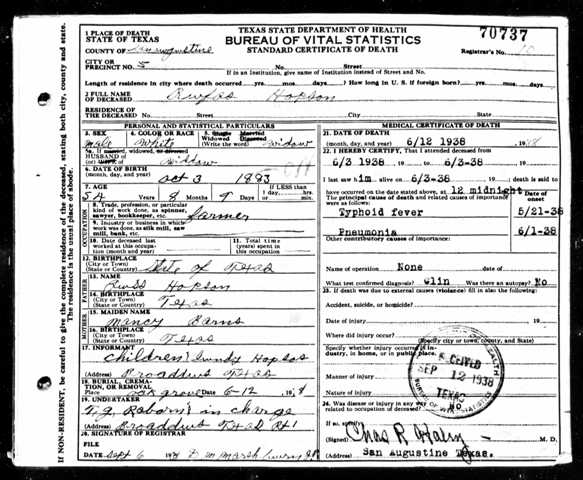 TEXAS STATE DEPARTMENT OF HEALTH
BUREAU OF VITAL STATISTICS
STANDARD CERTIFICATE OF DEATH
70737
Registrar's No. 10
1 PLACE OF DEATH
STATE OF TEXAS
COUNTY OF San Augustine
CITY OR
PRECINCT NO. 5 No. Street
If in an Institution, give name of Institution instead of Street and No.
Length of residence in city where death occurred yrs. mos. days? How long in U. S. if foreign born? yrs. mos. days
2 FULL NAME
OF DECEASED Rufas Hopson
RESIDENCE OF
THE DECEASED Street City State
PERSONAL AND STATISTICAL PARTICULARS
3. SEX 4. COLOR OR RACE 5. Single Married Widowed Divorced (Write the word)
male White widow
5a. If married, widowed, or divorced
HUSBAND OF
(or) WIFE of widdaw
6. DATE OF BIRTH
(month, day, and year) oct 3 1883
7. AGE Years Months Days If LESS than
1 day, hrs.
min.
54 8 9
8. Trade, profession, or particular
kind of work done, as spinner,
sawyer, bookkeeper, etc. farmer
9. Industry or business in which
work was done, as silk mill, saw
mill, bank, etc.
10. Date deceased last
worked at this occupation
(month and year)
11. Total time
(years) spent in
this occupation
12. BIRTHPLACE
(City or Town)
(State or Country) State of Texas
FATHER
13. NAME Russ Hopson
14. BIRTHPLACE
(City or Town)
(State or Country) Texas
MOTHER
15. MAIDEN NAME Nancy Barns
16. BIRTHPLACE
(City or Town)
(State or Country) Texas
17. INFORMANT
children Hopson
(Address) Broaddus Texas
18. BURIAL, CREMATION, OR REMOVAL
oak grove Date 6-12 1938
19. UNDERTAKER
in charge
(Address) Broaddus Texas Rt 1
20. SIGNATURE OF REGISTRAR
FILE
DATE Sept 6
MEDICAL CERTIFICATE OF DEATH
21. DATE OF DEATH
(month, day, and year) 6/12 1938
22. I HEREBY CERTIFY, That I attended deceased from
6/3 1938, 19 to 6/3-38, 19
I last saw him alive on 6/3-38, 19 death is said to
have occurred on the date stated above, at 12 midnight
The principal cause of death and related causes of importance
were as follows: Date of
onset
Typhoid fever 5/21-38
Pneumonia 6/1-38
Other contributory causes of importance:
Name of operation None
What test confirmed diagnosis? clin Was there an autopsy? No
23. If death was due to external causes (violence) fill in also the following:
Accident, suicide, or homicide?
Date of injury 19
Where did injury occur?
(Specify city or town, county, and State)
Specify whether injury occurred in industry, in home, or in public place.
Manner of injury
Nature of injury
RECEIVED
SEP 12 1938
TEXAS
BUREAU OF VITAL STATISTICS
24. Was disease or injury in any way
related to occupation of deceased?
If so, specify
(Signed) Chas R Haley M. D.
(Address) San Augustine Texas.
IF NON-RESIDENT, be careful to give the complete residence of the deceased, stating both city, county and state.
The residence is the usual place of abode.